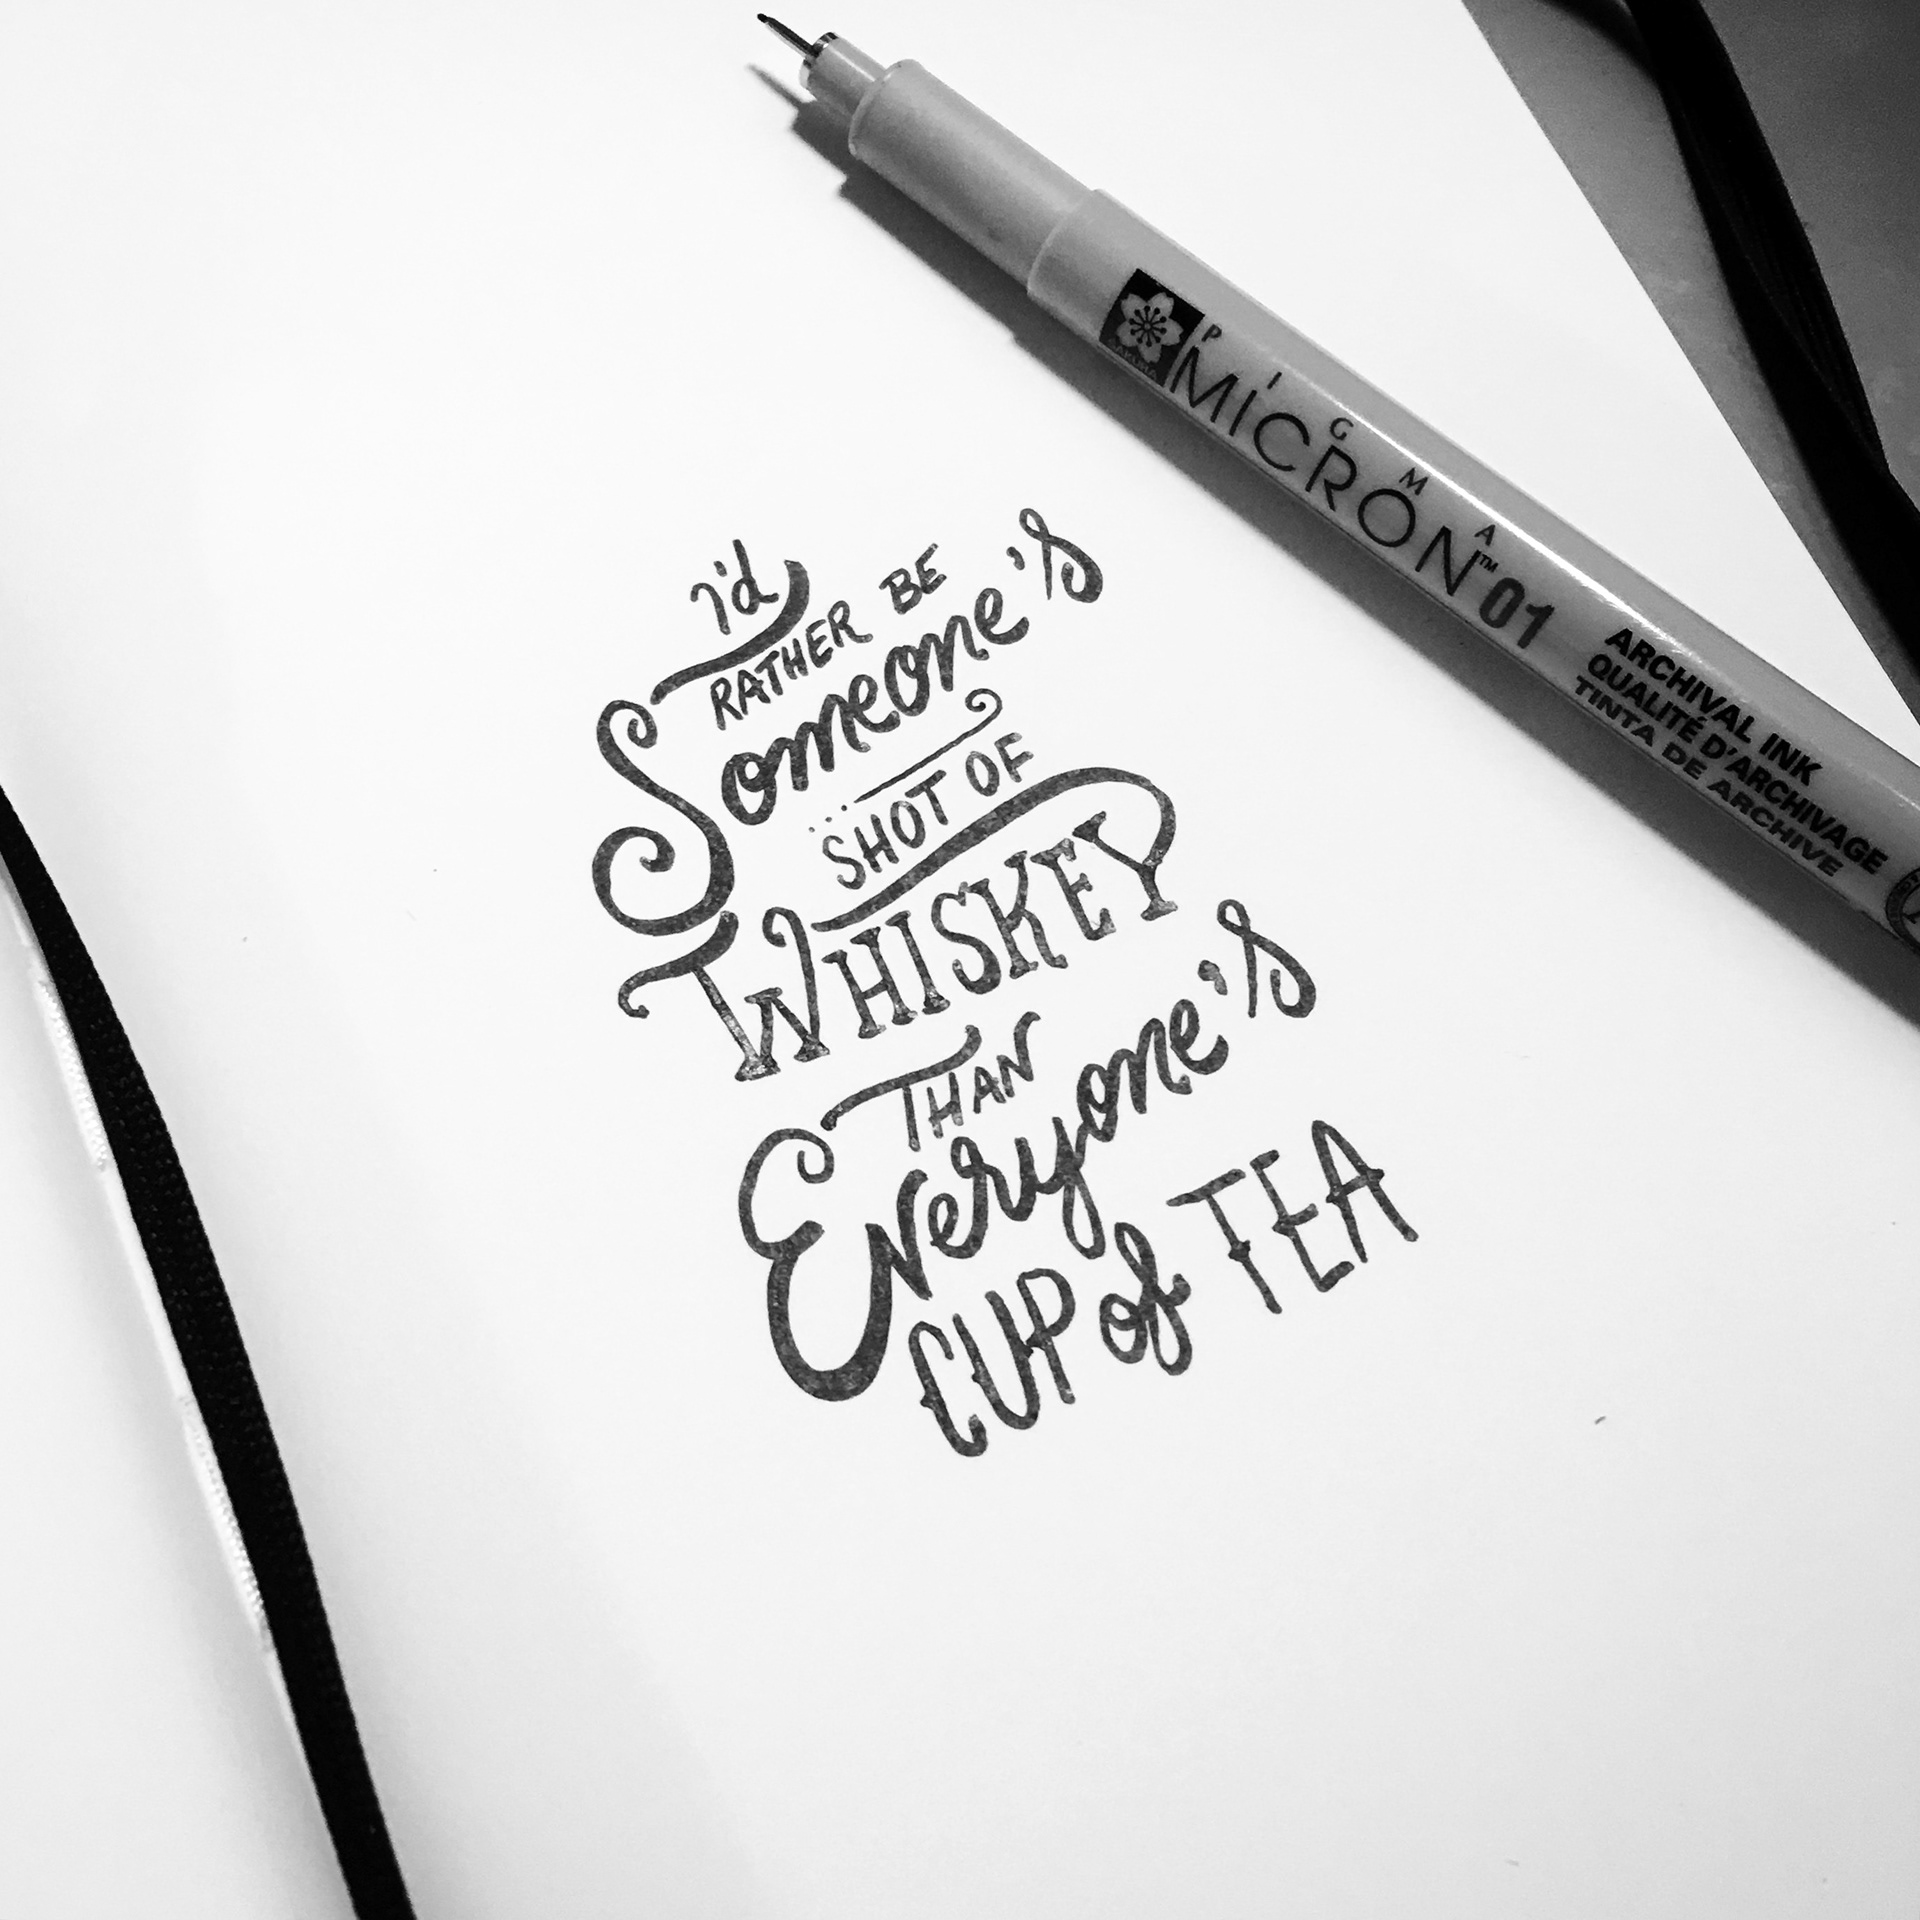 i'd
RATHER BE
Someone's
SHOT OF
WHISKEY
THAN
Everyone's
CUP of TEA
SAKURA
PIGMA
MICRON™ 01
ARCHIVAL INK
QUALITÉ D'ARCHIVAGE
TINTA DE ARCHIVE